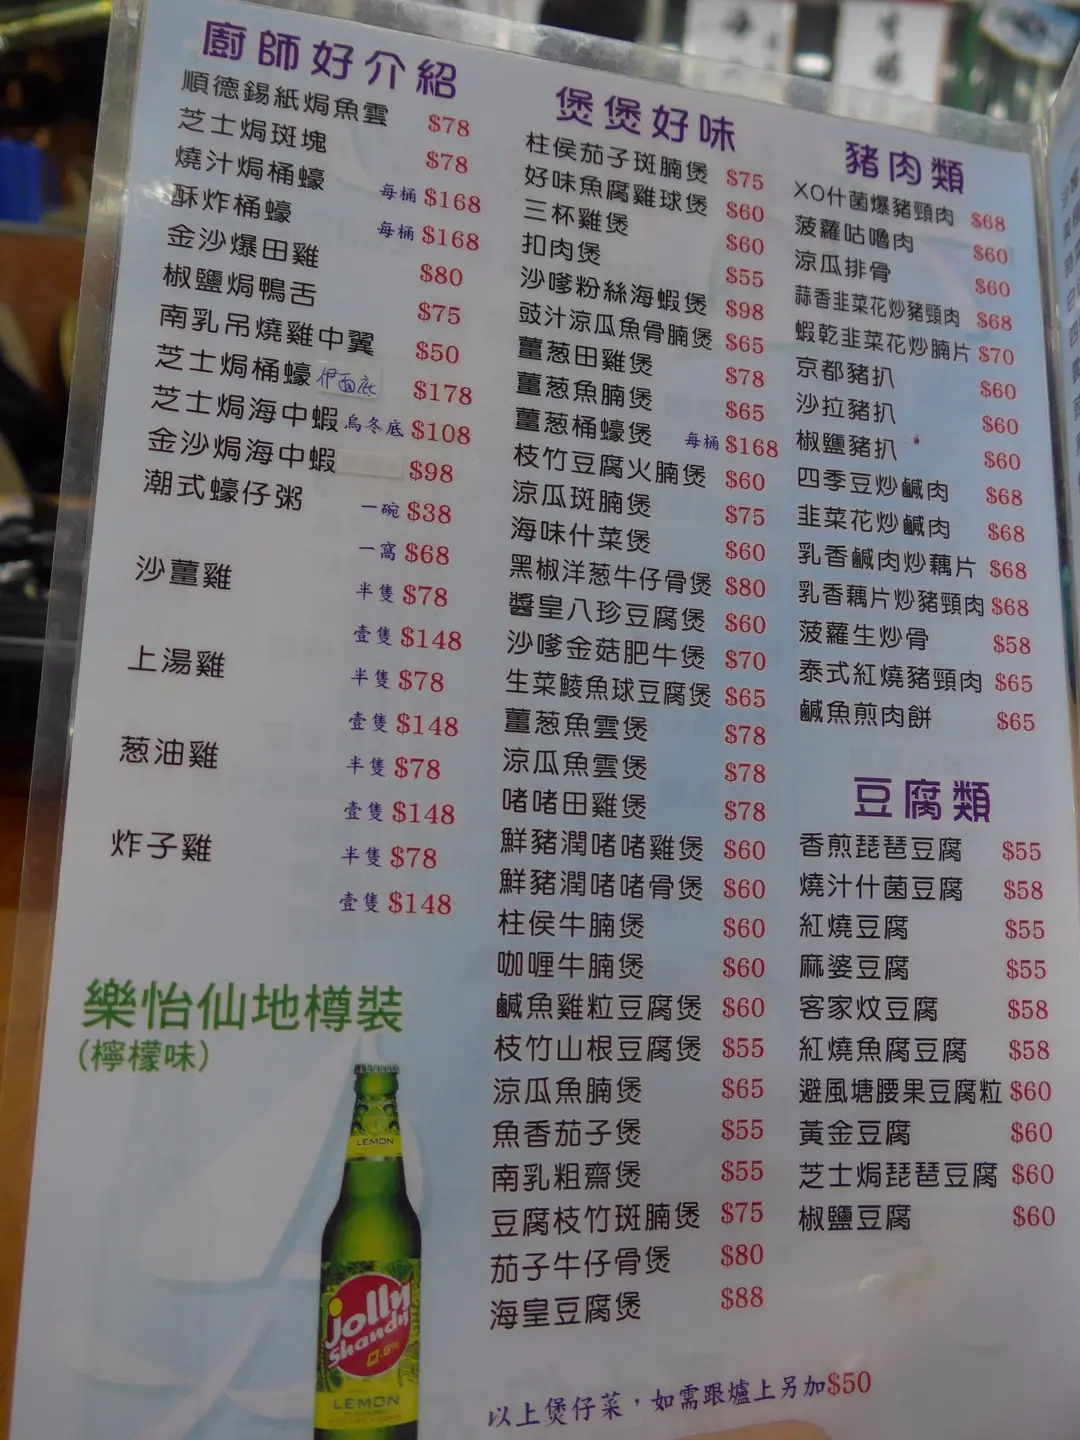 廚師好介紹
順德錫紙焗魚雲 $78
芝士焗斑塊 $78
燒汁焗桶蠔 每桶 $168
酥炸桶蠔 每桶 $168
金沙爆田雞 $80
椒鹽焗鴨舌 $75
南乳吊燒雞中翼 $50
芝士焗桶蠔 伊面底 $178
芝士焗海中蝦 烏冬底 $108
金沙焗海中蝦 $98
潮式蠔仔粥 一碗 $38
一窩 $68
沙薑雞 半隻 $78
壹隻 $148
上湯雞 半隻 $78
壹隻 $148
葱油雞 半隻 $78
壹隻 $148
炸子雞 半隻 $78
壹隻 $148
樂怡仙地樽裝
(檸檬味)
LEMON
jolly
Shandy
LEMON
煲煲好味
柱侯茄子斑腩煲 $75
好味魚腐雞球煲 $60
三杯雞煲 $60
扣肉煲 $55
沙嗲粉絲海蝦煲 $98
豉汁涼瓜魚骨腩煲 $65
薑葱田雞煲 $78
薑葱魚腩煲 $65
薑葱桶蠔煲 每桶 $168
枝竹豆腐火腩煲 $60
涼瓜斑腩煲 $75
海味什菜煲 $60
黑椒洋葱牛仔骨煲 $80
醬皇八珍豆腐煲 $60
沙嗲金菇肥牛煲 $70
生菜鯪魚球豆腐煲 $65
薑葱魚雲煲 $78
涼瓜魚雲煲 $78
啫啫田雞煲 $78
鮮豬潤啫啫雞煲 $60
鮮豬潤啫啫骨煲 $60
柱侯牛腩煲 $60
咖喱牛腩煲 $60
鹹魚雞粒豆腐煲 $60
枝竹山根豆腐煲 $55
涼瓜魚腩煲 $65
魚香茄子煲 $55
南乳粗齋煲 $55
豆腐枝竹斑腩煲 $75
茄子牛仔骨煲 $80
海皇豆腐煲 $88
以上煲仔菜，如需跟爐上另加$50
豬肉類
XO什菌爆豬頸肉 $68
菠蘿咕嚕肉 $60
涼瓜排骨 $60
蒜香韭菜花炒豬頸肉 $68
蝦乾韭菜花炒腩片 $70
京都豬扒 $60
沙拉豬扒 $60
椒鹽豬扒 $60
四季豆炒鹹肉 $68
韭菜花炒鹹肉 $68
乳香鹹肉炒藕片 $68
乳香藕片炒豬頸肉 $68
菠蘿生炒骨 $58
泰式紅燒豬頸肉 $65
鹹魚煎肉餅 $65
豆腐類
香煎琵琶豆腐 $55
燒汁什菌豆腐 $58
紅燒豆腐 $55
麻婆豆腐 $55
客家炆豆腐 $58
紅燒魚腐豆腐 $58
避風塘腰果豆腐粒 $60
黃金豆腐 $60
芝士焗琵琶豆腐 $60
椒鹽豆腐 $60